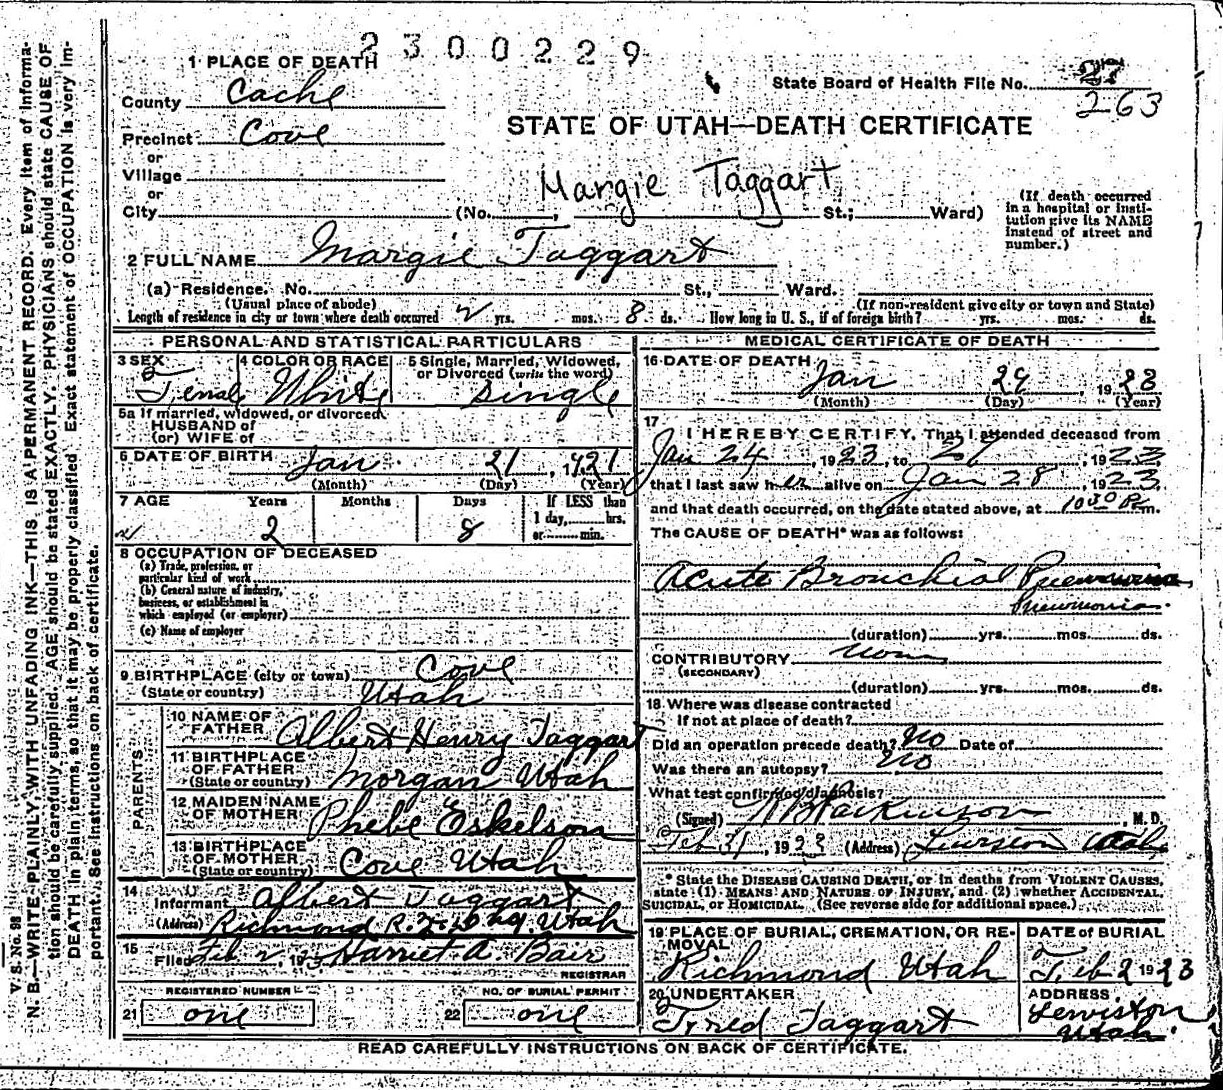 2300229
1 PLACE OF DEATH
State Board of Health File No. 27
263
County Cache
STATE OF UTAH—DEATH CERTIFICATE
Precinct Cove
or
Village
or
Margie Taggart
City (No. , St.; Ward)
(If death occurred in a hospital or institution give its NAME instead of street and number.)
2 FULL NAME Margie Taggart
(a) Residence. No. St., Ward.
(Usual place of abode) (If non-resident give city or town and State)
Length of residence in city or town where death occurred 2 yrs. mos. 8 ds. How long in U. S., if of foreign birth? yrs. mos. ds.
PERSONAL AND STATISTICAL PARTICULARS
3 SEX 4 COLOR OR RACE 5 Single, Married, Widowed, or Divorced (write the word)
Female White Single
5a If married, widowed, or divorced
HUSBAND of
(or) WIFE of
6 DATE OF BIRTH Jan. 21, 1921
(Month) (Day) (Year)
7 AGE Years Months Days If LESS than
1 day, hrs.
or min.
2 8
8 OCCUPATION OF DECEASED
(a) Trade, profession, or
particular kind of work
(b) General nature of industry,
business, or establishment in
which employed (or employer)
(c) Name of employer
9 BIRTHPLACE (city or town) Cove
(State or country) Utah
PARENTS
10 NAME OF FATHER Albert Henry Taggart
11 BIRTHPLACE OF FATHER
(State or country) Morgan Utah
12 MAIDEN NAME OF MOTHER Phebe Eskelson
13 BIRTHPLACE OF MOTHER
(State or country) Cove Utah
14
Informant Albert Taggart
(Address) Richmond R. F. D. Utah
15
Filed Feb 2, 1923 Harriet A. Bair
REGISTRAR
REGISTERED NUMBER NO. OF BURIAL PERMIT
21 one 22 one
MEDICAL CERTIFICATE OF DEATH
16 DATE OF DEATH
Jan 29 1923
(Month) (Day) (Year)
17
I HEREBY CERTIFY, That I attended deceased from
Jan 24, 1923, to , 1923
that I last saw her alive on Jan 28, 1923,
and that death occurred, on the date stated above, at 10 30 P.m.
The CAUSE OF DEATH* was as follows:
Acute Bronchial Pneumonia
Pneumonia.
(duration) yrs. mos. ds.
CONTRIBUTORY None
(SECONDARY)
(duration) yrs. mos. ds.
18 Where was disease contracted
If not at place of death?
Did an operation precede death? No Date of
Was there an autopsy? No
What test confirmed diagnosis?
(Signed) , M. D.
Feb 31, 1923 (Address) Lewiston Utah
* State the DISEASE CAUSING DEATH, or in deaths from VIOLENT CAUSES,
state (1) MEANS AND NATURE OF INJURY, and (2) whether ACCIDENTAL,
SUICIDAL, or HOMICIDAL. (See reverse side for additional space.)
19 PLACE OF BURIAL, CREMATION, OR REMOVAL DATE of BURIAL
Richmond Utah Feb 2 1923
20 UNDERTAKER ADDRESS
Fred Taggart Lewiston
Utah
READ CAREFULLY INSTRUCTIONS ON BACK OF CERTIFICATE.
V. S. No. 98
N. B.—WRITE PLAINLY WITH UNFADING INK—THIS IS A PERMANENT RECORD. Every item of information should be carefully supplied. AGE should be stated EXACTLY. PHYSICIANS should state CAUSE OF
DEATH in plain terms, so that it may be properly classified. Exact statement of OCCUPATION is very important. See instructions on back of certificate.